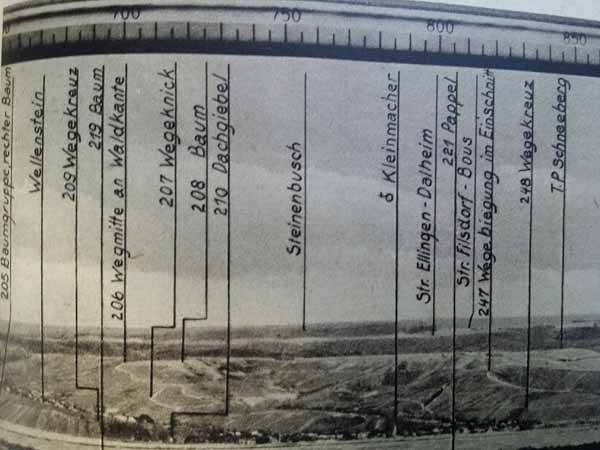 700
750
800
850
205 Baumgruppe, rechter Baum
Wellenstein
209 Wegekreuz
219 Baum
206 Wegmitte an Waldkante
207 Wegeknick
208 Baum
210 Dachgiebel
Steinenbusch
♁ Kleinmacher
Str. Ellingen-Dalheim
221 Pappel
Str. Filsdorf-Bous
247 Wegebiegung im Einschnitt
248 Wegekreuz
T.P. Schneeberg